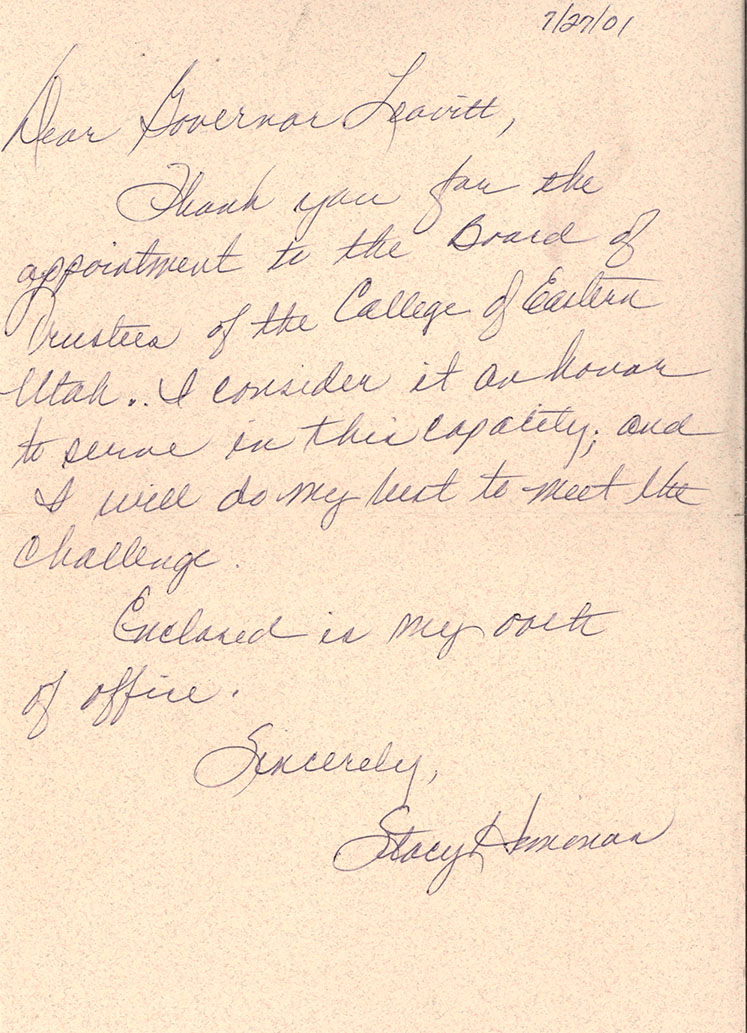 7/27/01
Dear Governor Leavitt,
Thank you for the
appointment to the Board of
Trustees of the College of Eastern
Utah.. I consider it an honor
to serve in this capacity; and
I will do my best to meet the
challenge.
Enclosed is my oath
of office.
Sincerely,
Stacy